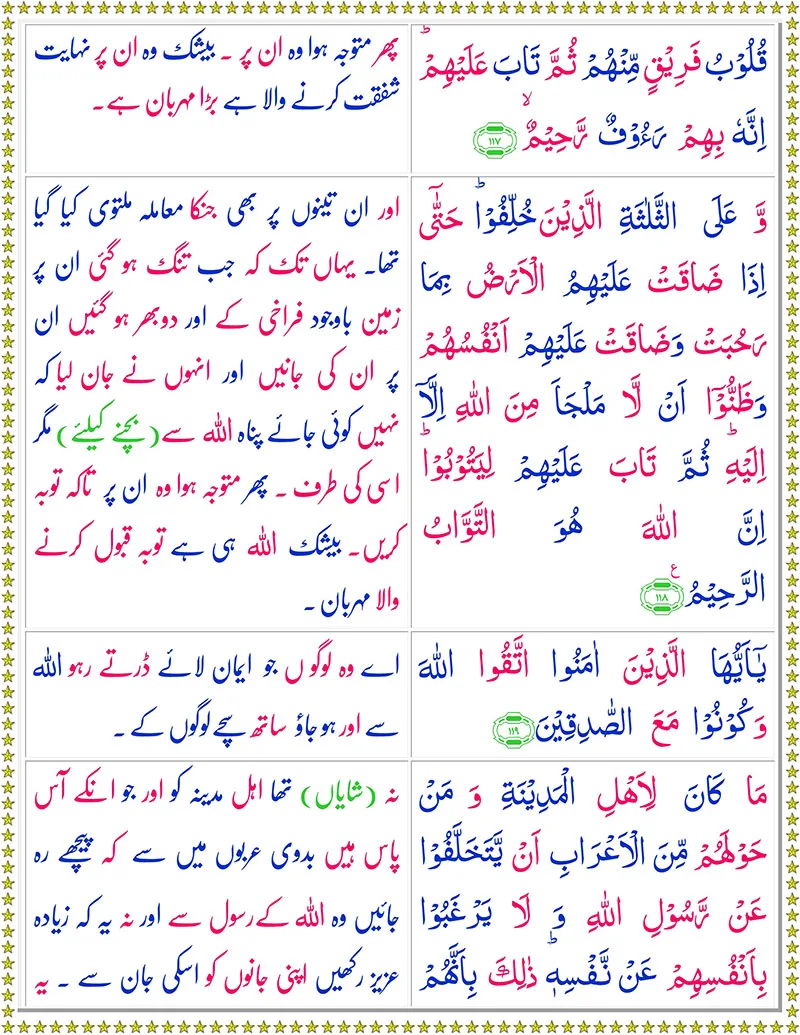 قُلُوۡبُ فَرِيۡقٍ مِّنۡهُمۡ ثُمَّ تَابَ عَلَيۡهِمۡؕ
اِنَّهٗ بِهِمۡ رَءُوۡفٌ رَّحِيۡمٌۙ ﴿۱۱۷﴾
پھر متوجہ ہوا وہ ان پر ۔ بیشک وہ ان پر نہایت
شفقت کرنے والا ہے بڑا مہربان ہے۔
وَّ عَلَى الثَّلٰثَةِ الَّذِيۡنَ خُلِّفُوۡاؕ حَتّٰۤى
اِذَا ضَاقَتۡ عَلَيۡهِمُ الۡاَرۡضُ بِمَا
رَحُبَتۡ وَضَاقَتۡ عَلَيۡهِمۡ اَنۡفُسُهُمۡ
وَظَنُّوۡۤا اَنۡ لَّا مَلۡجَاَ مِنَ اللّٰهِ اِلَّاۤ
اِلَيۡهِؕ ثُمَّ تَابَ عَلَيۡهِمۡ لِيَتُوۡبُوۡاؕ
اِنَّ اللّٰهَ هُوَ التَّوَّابُ
الرَّحِيۡمُ ﴿۱۱۸﴾ ع
اور ان تینوں پر بھی جنکا معاملہ ملتوی کیا گیا
تھا۔ یہاں تک کہ جب تنگ ہو گئی ان پر
زمین باوجود فراخی کے اور دوبھر ہو گئیں ان
پر ان کی جانیں اور انہوں نے جان لیا کہ
نہیں کوئی جائے پناہ اللہ سے (بچنے کیلئے) مگر
اسی کی طرف ۔ پھر متوجہ ہوا وہ ان پر تاکہ توبہ
کریں۔ بیشک اللہ ہی ہے توبہ قبول کرنے
والا مہربان ۔
يٰۤاَيُّهَا الَّذِيۡنَ اٰمَنُوا اتَّقُوا اللّٰهَ
وَكُوۡنُوۡا مَعَ الصّٰدِقِيۡنَ ﴿۱۱۹﴾
اے وہ لوگو ں جو ایمان لائے ڈرتے رہو اللہ
سے اور ہو جاؤ ساتھ سچے لوگوں کے ۔
مَا كَانَ لِاَهۡلِ الۡمَدِيۡنَةِ وَ مَنۡ
حَوۡلَهُمۡ مِّنَ الۡاَعۡرَابِ اَنۡ يَّتَخَلَّفُوۡا
عَنۡ رَّسُوۡلِ اللّٰهِ وَ لَا يَرۡغَبُوۡا
بِاَنۡفُسِهِمۡ عَنۡ نَّفۡسِهٖؕ ذٰلِكَ بِاَنَّهُمۡ
نہ (شایاں) تھا اہل مدینہ کو اور جو انکے آس
پاس ہیں بدوی عربوں میں سے کہ پیچھے رہ
جائیں وہ اللہ کے رسول سے اور نہ یہ کہ زیادہ
عزیز رکھیں اپنی جانوں کو اسکی جان سے ۔ یہ